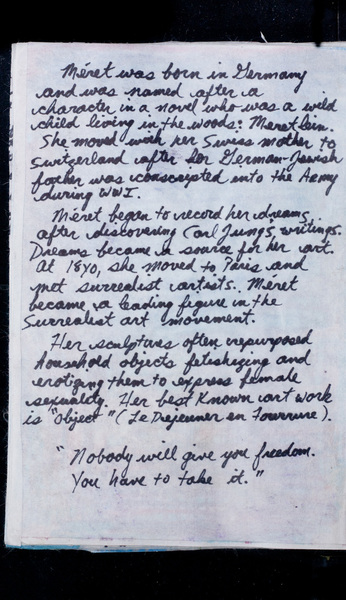 Méret was born in Germany
and was named after a
character in a novel who was a wild
child living in the woods: Meretlein.
She moved with her Swiss mother to
Switzerland after her German-Jewish
father was conscripted into the Army
during WWI.
Méret began to record her dreams
after discovering Carl Jung's writings.
Dreams became a source for her art.
At 18yo, she moved to Paris and
met surrealist artists. Méret
became a leading figure in the
Surrealist art movement.
Her sculptures often repurposed
household objects fetishizing and
erotizing them to express female
sexuality. Her best known art work
is "Object" (Le Dejeuner en Fourrure).
"Nobody will give you freedom.
You have to take it."